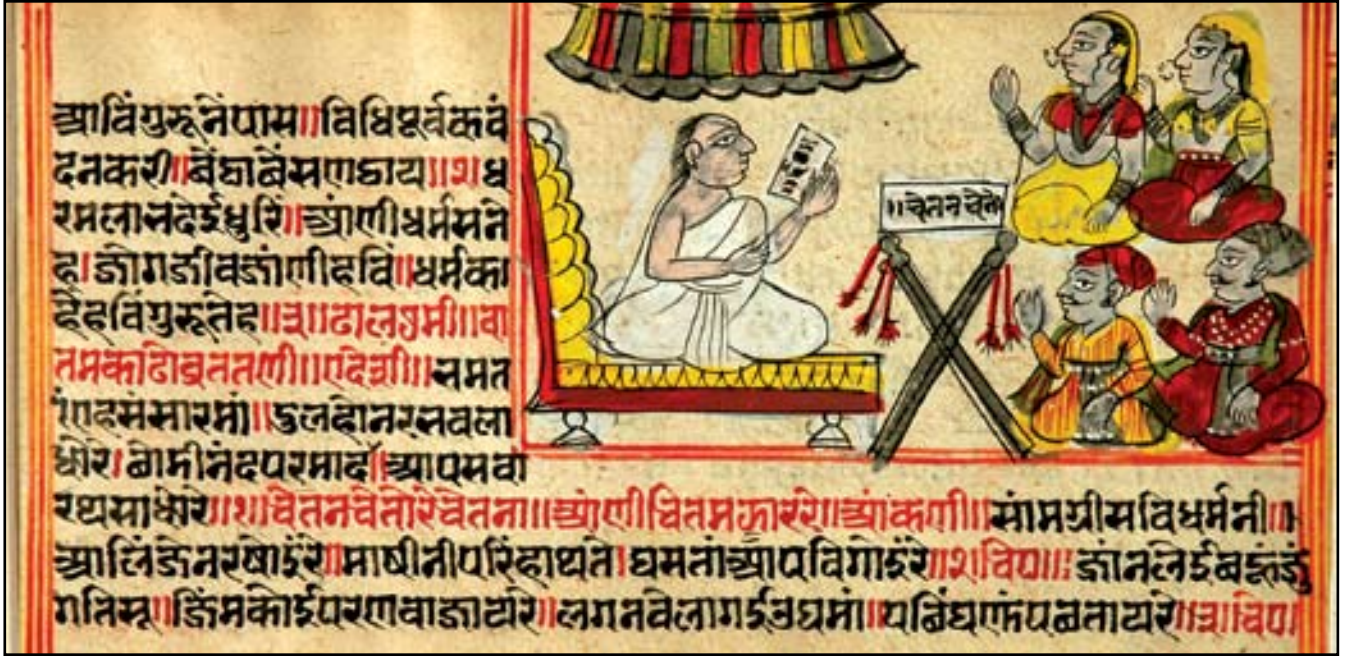 आविंगुरूनेंपास॥विधिपूर्वकवं
दनकरी॥बेंठाबेंसणठाय॥१॥ध
रमलाभदेईधुरिं॥आंणीधर्मसने
ह।जोगजीवजांणीहविं॥धर्मक
हेंहविंगुरूतेह॥ ढाल७मी॥वा
तमकाढोव्रततणी॥एदेशी॥भमत
एहसंसारमां॥डुलहोनरभवला
धोरे।छांमीनंदपरमाद॥आपसवा
रथसाधोरे॥१॥चेतनचेतोरेचेतना॥आंणीचितमझाररे॥आंकणी॥सांमग्रीसविधर्मनी॥
आलिंजेनरषोइंरे॥माषीनीपरिंहाथते।घसतांआपविगोइंरे॥२॥चे०॥जांनलेईबहूजु
गतिसू॥जिंमकोईपरणवाजायरे॥लगनवेलागईउघमां॥पछिंघणुंपछतायरे॥३॥चे०।
॥चेतनचेतो